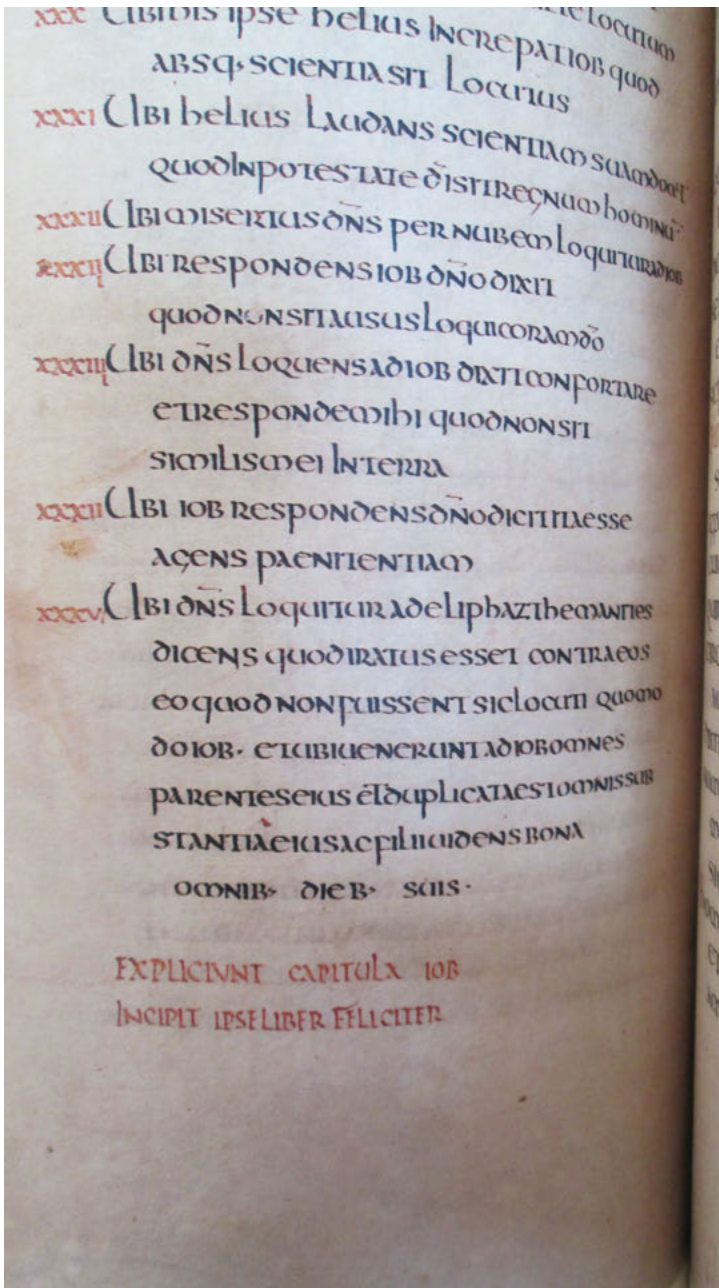 LOCUTUM
XXX UBI BIS IPSE HELIUS INCREPAT IOB QUOD
ABSQ· SCIENTIA SIT LOCUTUS
XXXI UBI HELIUS LAUDANS SCIENTIAM SUAM
QUOD IN POTESTATE D̄I SIT REGNUM HOMINŪ
XXXII UBI MISERTUS DN̄S PER NUBEM LOQUITUR AD IOB
XXXIII UBI RESPONDENS IOB DN̄O DIXIT
QUOD NON SIT AUSUS LOQUI CORAM DŌ
XXXIIII UBI DN̄S LOQUENS AD IOB DIXIT CONFORTARE
ET RESPONDE MIHI QUOD NON SIT
SIMILIS MEI IN TERRA
UBI IOB RESPONDENS DN̄O DICIT ITA ESSE
AGENS PAENITENTIAM
XXXVI UBI DN̄S LOQUITUR AD ELIPHAZ THEMANITES
DICENS QUOD IRATUS ESSET CONTRA EOS
EO QUOD NON FUISSENT SIC LOCUTI QUOMO
DO IOB· ET UBI UENERUNT AD IOB OMNES
PARENTES EIUS ET DUPLICATA EST OMNIS SUB
STANTIA EIUS AC FILII UIDENS BONA
OMNIB· DIEB· SUIS·
EXPLICIUNT CAPITULA IOB
INCIPIT IPSE LIBER FELICITER